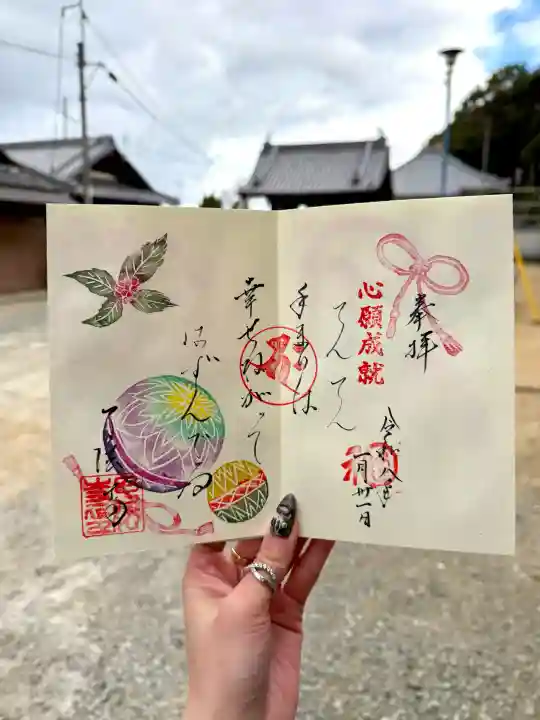 奉拝
令和八年
一月廿一日
心願成就
てん てん
手まりは
幸せねがって
はずんでゆ